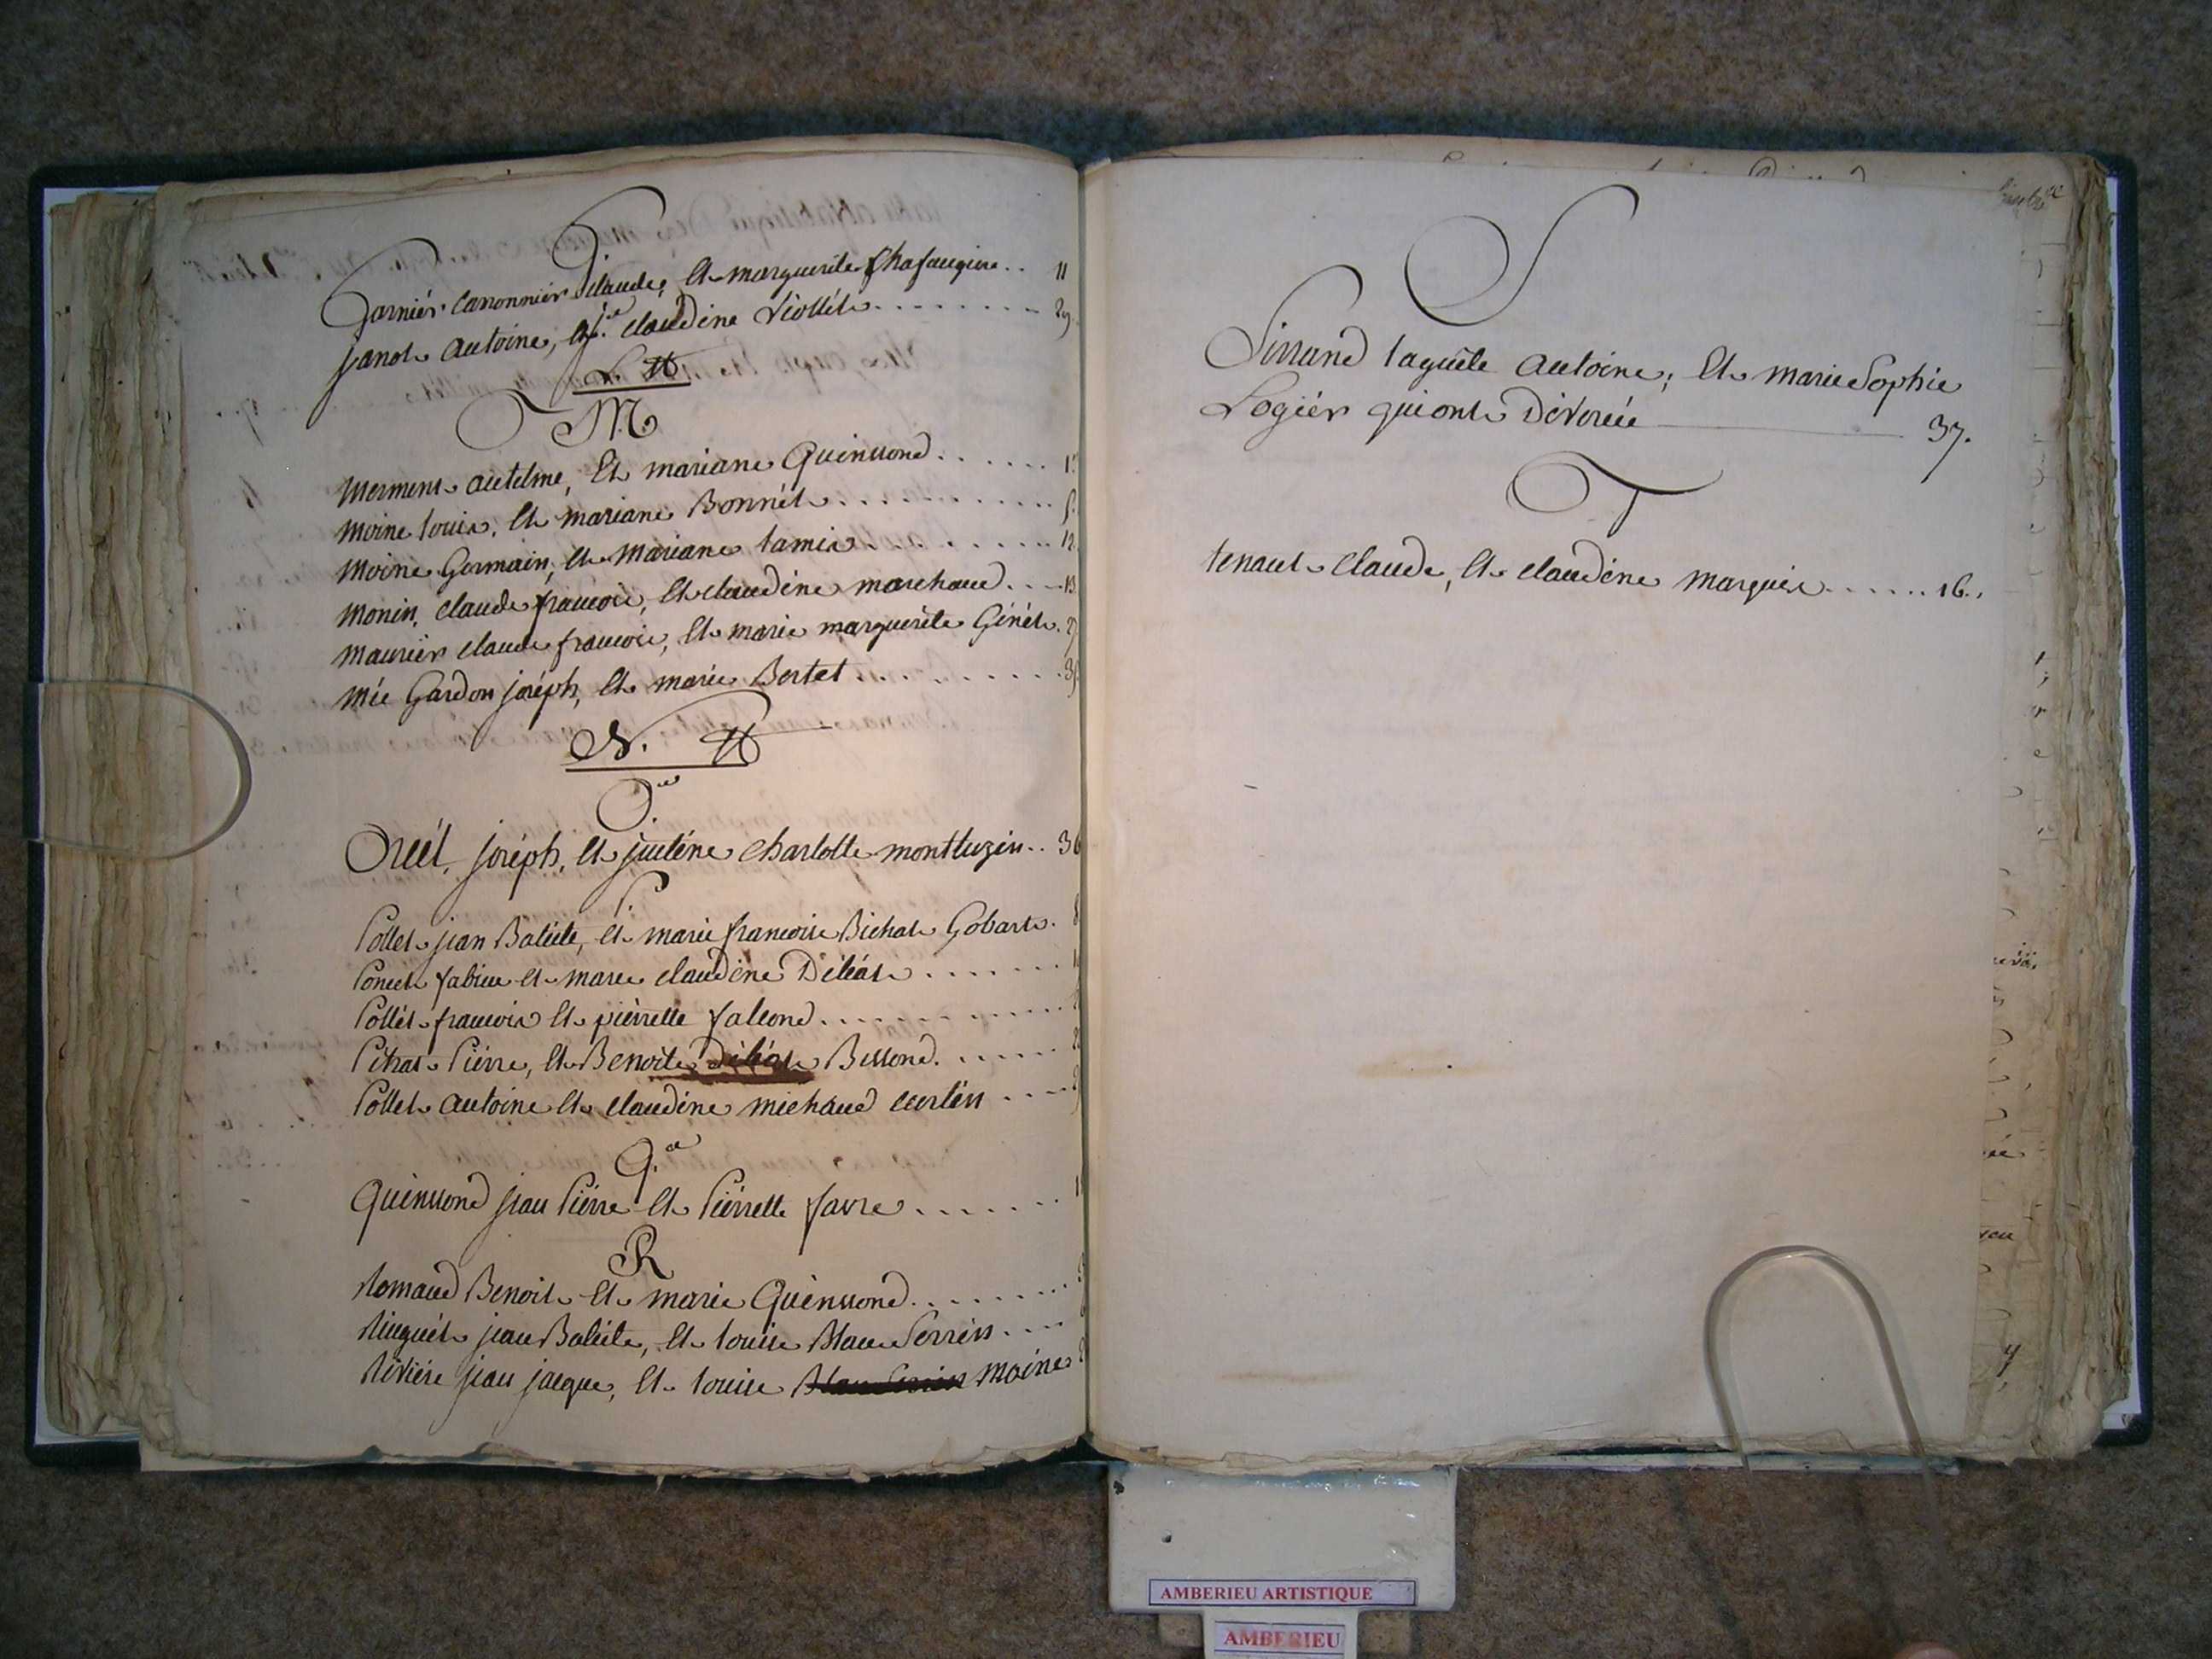 G
Garniér Canonniér Claude, Et marguerite Chafaugiere . . 11
janot antoine, Et Claudine Viollét . . . . . . . . 29
L. #
M.
merment antelme, Et mariane Quinssond . . . . . .
moine louis, Et mariane Bonnét . . . . . . . . . .
Moine Germain, Et Mariane lamix . . . . . . 12
Monin, Claude francois, Et claudine marchand . . . 13
Mauriér claude francois, Et marie marguerite Génét .
Mée Gardon joséph, Et marie Bertet . . . . . . . .
N. #
O.
Oréél, joséph, Et justine charlotte montluzin . . 36
P.
Pollet jean Batiste, Et marie francoise Bichat Gobart . 8
Poncet fabien Et marie claudine Déléat . . . . . . .
Pollét francois Et piérrette falcond . . . . . . . . .
Pétrat Piérre, Et Benoite Déléat Bessond . . . . . .
Pollet antoine Et claudine michaud . . . .
Q.
Quinssond jean Piérre Et Piérrette favre . . . . . . .
R
Romand Benoit Et marie Quinssond . . . . . . . .
Ruguét jean Batiste, Et louise Blanc Perrin . . . .
Riviére jean jacque, Et louise Blanc Perrin Moine
S
Sirrand laguéte antoine; Et marie Sophie
Logiér qui ont Divorcée 37.
T
tenant Claude, Et claudine marquis . . . . . . 16.
AMBERIEU ARTISTIQUE
AMBERIEU